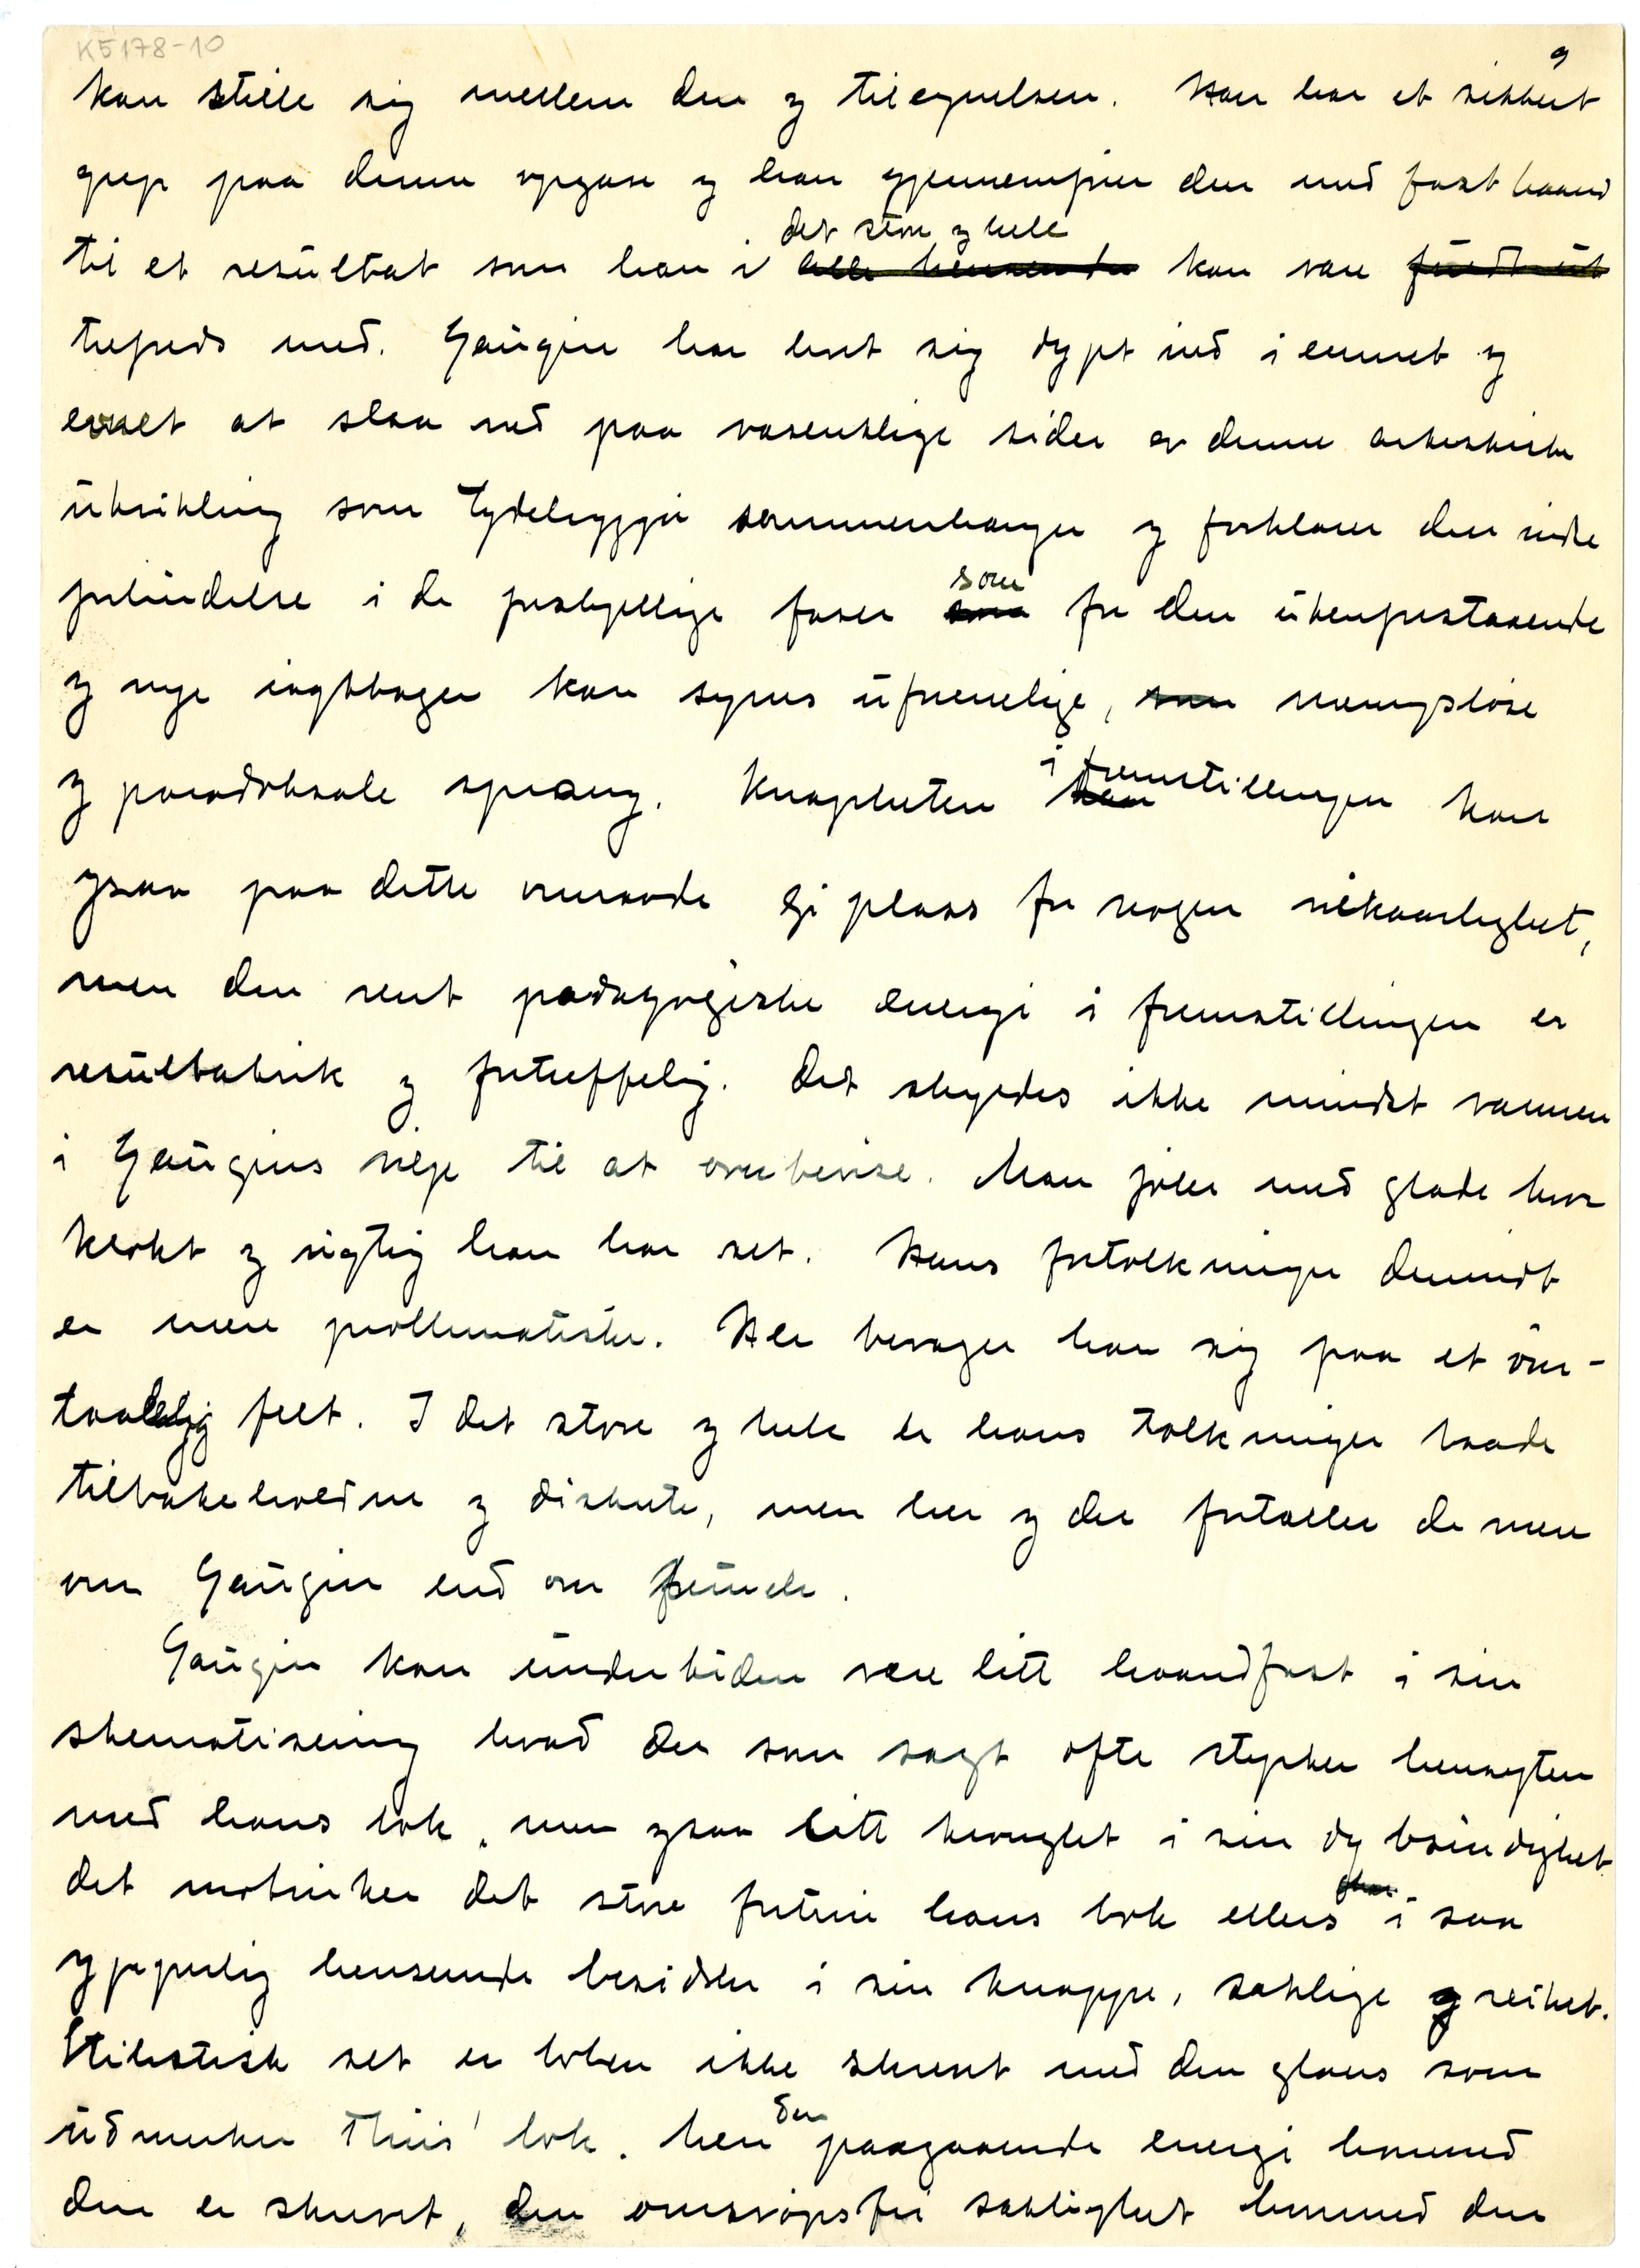 K5178-10
9
kan stille sig mellem den og tilegnelsen. Han har et sikkert
grep paa denne opgave og han gjennemfører den med fast haand
det store og hele
til et resultat som han i alle henseender kan være fuldt ut
tilfreds med. Gauguin har levt sig dypt ind i emnet og
evnet at slaa ned paa væsentlige sider av denne artistiske
utvikling som tydeliggjør sammenhængen og forklarer den indre
som
forbindelse i de forskjellige faser som for den utenforstaaende
og nye iagttager kan synes uforenelige, som meningsløse
og paradoksale sprang. Knapheten i fremstillingen kan
ogsaa paa dette omraade gi plass for nogen vilkaarlighet,
men den rent pædagogiske energi i fremstillingen er
resultatrik og fortræffelig. Det skyldes ikke mindst varmen
i Gauguins vilje til at overbevise. Man føler med glæde hvor
klokt og rigtig han har set. Hans fortolkninger derimot
er mere problematiske. Her bevæger han sig paa et øm-
taalelig felt. I det store og hele er hans tolkninger baade
tilbakeholdne og diskrete, men her og der fortæller de mere
om Gauguin end om Munch.
Gauguin kan undertiden være litt haandfast i sin
skematisering hvad der som sagt ofte styrker hensigten
med hans bok, men ogsaa litt knuglet i sin dybsindighet.
det motvirker det store fortrin hans bok ellers i saa
ypperlig henseende besidder i sin knappe, saklige greihet.
Stilistisk set er boken ikke skrevet med den glans som
den
utmerker Thiis' bok. Men paagaaende energi hvormed
den er skrevet, den omsvøpsfri saklighet hvormed den